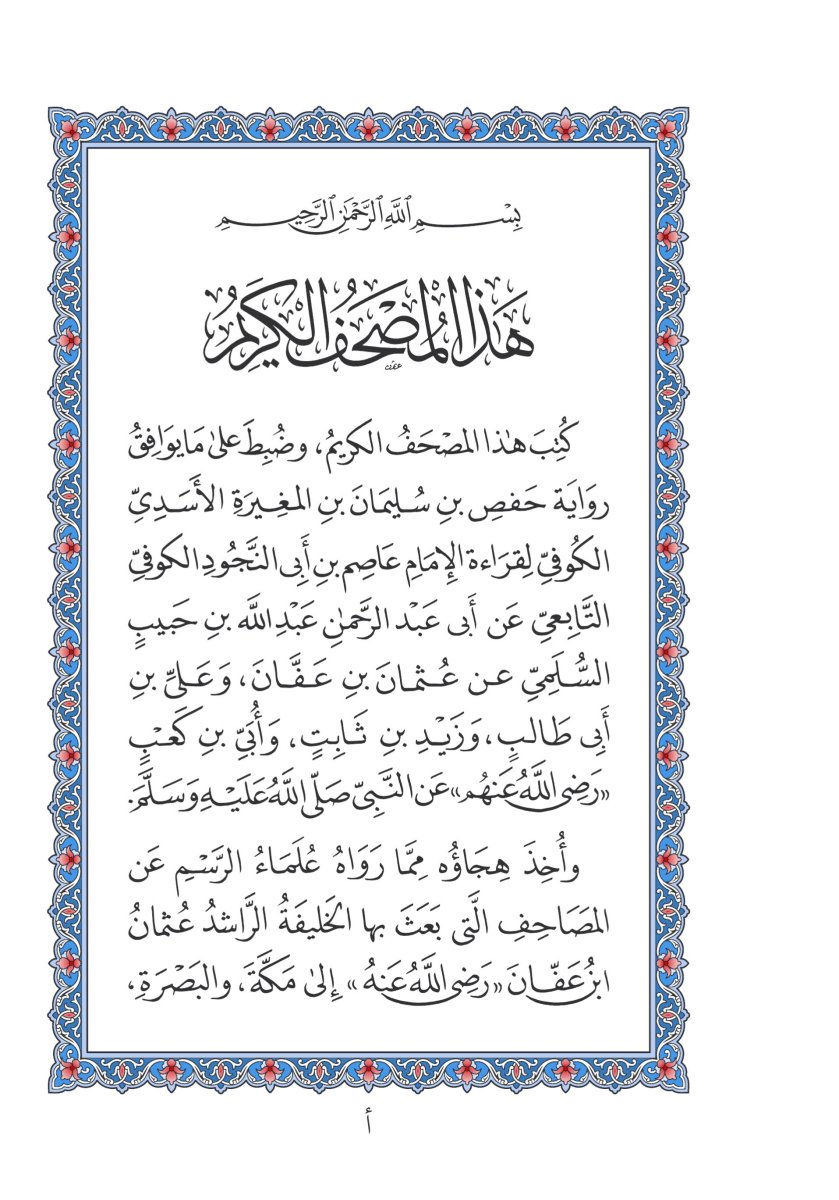 بِسْمِ ٱللَّهِ ٱلرَّحْمَٰنِ ٱلرَّحِيمِ
هَذَا الْمُصْحَفُ الْكَرِيمُ
كُتِبَ هٰذا المصْحَفُ الكريمُ، وضُبِطَ علىٰ مَا يوَافِقُ
روَايَة حَفصِ بنِ سُليمَانَ بنِ المغِيرَةِ الأَسَدِيِّ
الكُوفيِّ لِقرَاءة الإمَامِ عَاصِم بنِ أَبِى النَّجُودِ الكوفيِّ
التَّابِعيِّ عَن أَبى عَبْد الرَّحمٰنِ عَبْدِ اللَّه بنِ حَبيبٍ
السُّلَمِيِّ عن عُثمانَ بنِ عَفَّانَ، وَعَليِّ بنِ
أَبِى طَالبٍ، وَزَيْدِ بنِ ثَابِتٍ، وَأُبَيِّ بنِ كَعْبٍ
«رَضِى اللَّهُ عَنهُم» عَن النَّبِيّ صَلّى اللَّهُ عَلَيْهِ وَسَلَّمَ.
وأُخِذَ هِجَاؤُه مِمَّا رَوَاهُ عُلَمَاءُ الرَّسْمِ عَن
المصَاحِفِ الَّتى بَعَثَ بها الخَليفَةُ الرَّاشدُ عُثمانُ
ابنُ عَفّانَ «رَضِى اللَّهُ عَنهُ» إِلىٰ مَكَّةَ، والبَصْرَةِ،
أ